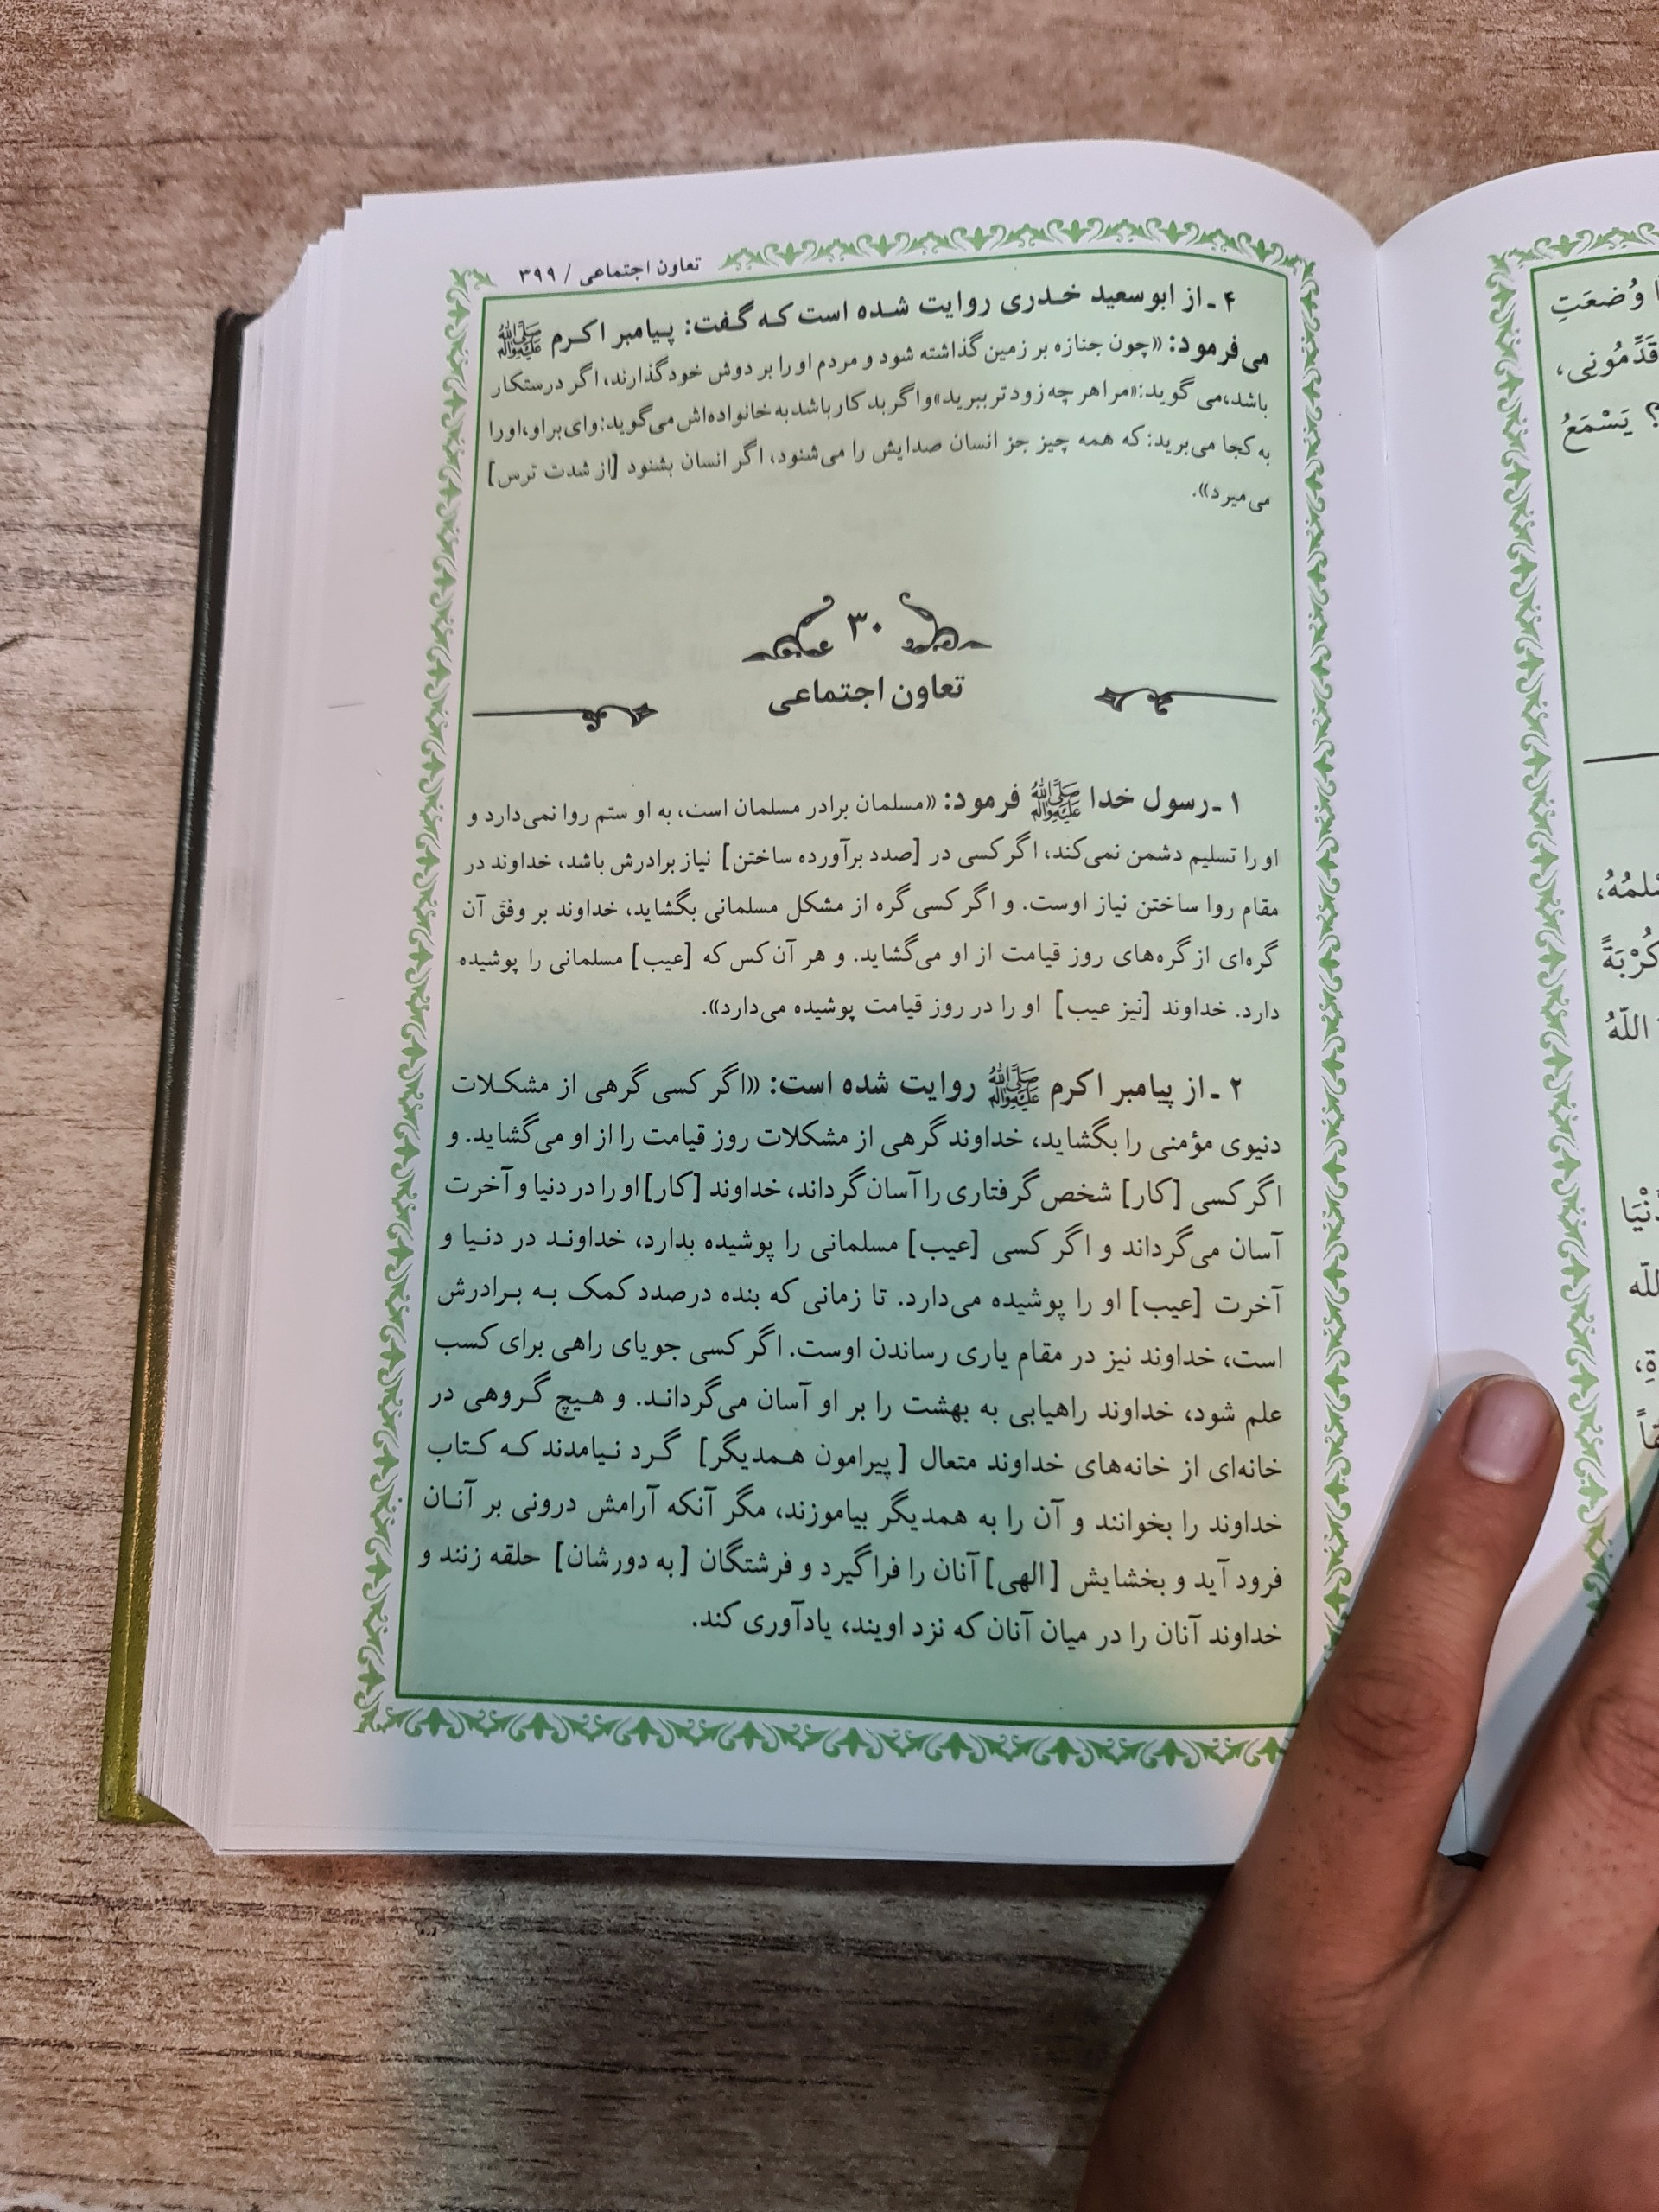 تعاون اجتماعی / ۳۹۹
۴ ـ از ابوسعید خدری روایت شده است که گفت: پیامبر اکرم ﷺ
می‌فرمود: «چون جنازه بر زمین گذاشته شود و مردم او را بر دوش خود گذارند، اگر درستکار
باشد، می‌گوید: «مرا هر چه زودتر ببرید» و اگر بدکار باشد به خانواده‌اش می‌گوید: وای بر او، او را
به کجا می‌برید: که همه چیز جز انسان صدایش را می‌شنود، اگر انسان بشنود [از شدت ترس]
می‌میرد».
۳۰
تعاون اجتماعی
۱ ـ رسول خدا ﷺ فرمود: «مسلمان برادر مسلمان است، به او ستم روا نمی‌دارد و
او را تسلیم دشمن نمی‌کند، اگر کسی در [صدد برآورده ساختن] نیاز برادرش باشد، خداوند در
مقام روا ساختن نیاز اوست. و اگر کسی گره از مشکل مسلمانی بگشاید، خداوند بر وفق آن
گره‌ای از گره‌های روز قیامت از او می‌گشاید. و هر آن کس که [عیب] مسلمانی را پوشیده
دارد. خداوند [نیز عیب] او را در روز قیامت پوشیده می‌دارد».
۲ ـ از پیامبر اکرم ﷺ روایت شده است: «اگر کسی گرهی از مشکلات
دنیوی مؤمنی را بگشاید، خداوند گرهی از مشکلات روز قیامت را از او می‌گشاید. و
اگر کسی [کار] شخص گرفتاری را آسان گرداند، خداوند [کار] او را در دنیا و آخرت
آسان می‌گرداند و اگر کسی [عیب] مسلمانی را پوشیده بدارد، خداوند در دنیا و
آخرت [عیب] او را پوشیده می‌دارد. تا زمانی که بنده درصدد کمک به برادرش
است، خداوند نیز در مقام یاری رساندن اوست. اگر کسی جویای راهی برای کسب
علم شود، خداوند راهیابی به بهشت را بر او آسان می‌گرداند. و هیچ گروهی در
خانه‌ای از خانه‌های خداوند متعال [پیرامون همدیگر] گرد نیامدند که کتاب
خداوند را بخوانند و آن را به همدیگر بیاموزند، مگر آنکه آرامش درونی بر آنان
فرود آید و بخشایش [الهی] آنان را فراگیرد و فرشتگان [به دورشان] حلقه زنند و
خداوند آنان را در میان آنان که نزد اویند، یادآوری کند.
وُضعَتِ
قَدِّمُونِی،
؟ یَسْمَعُ
کُرْبَةً
اللّهُ